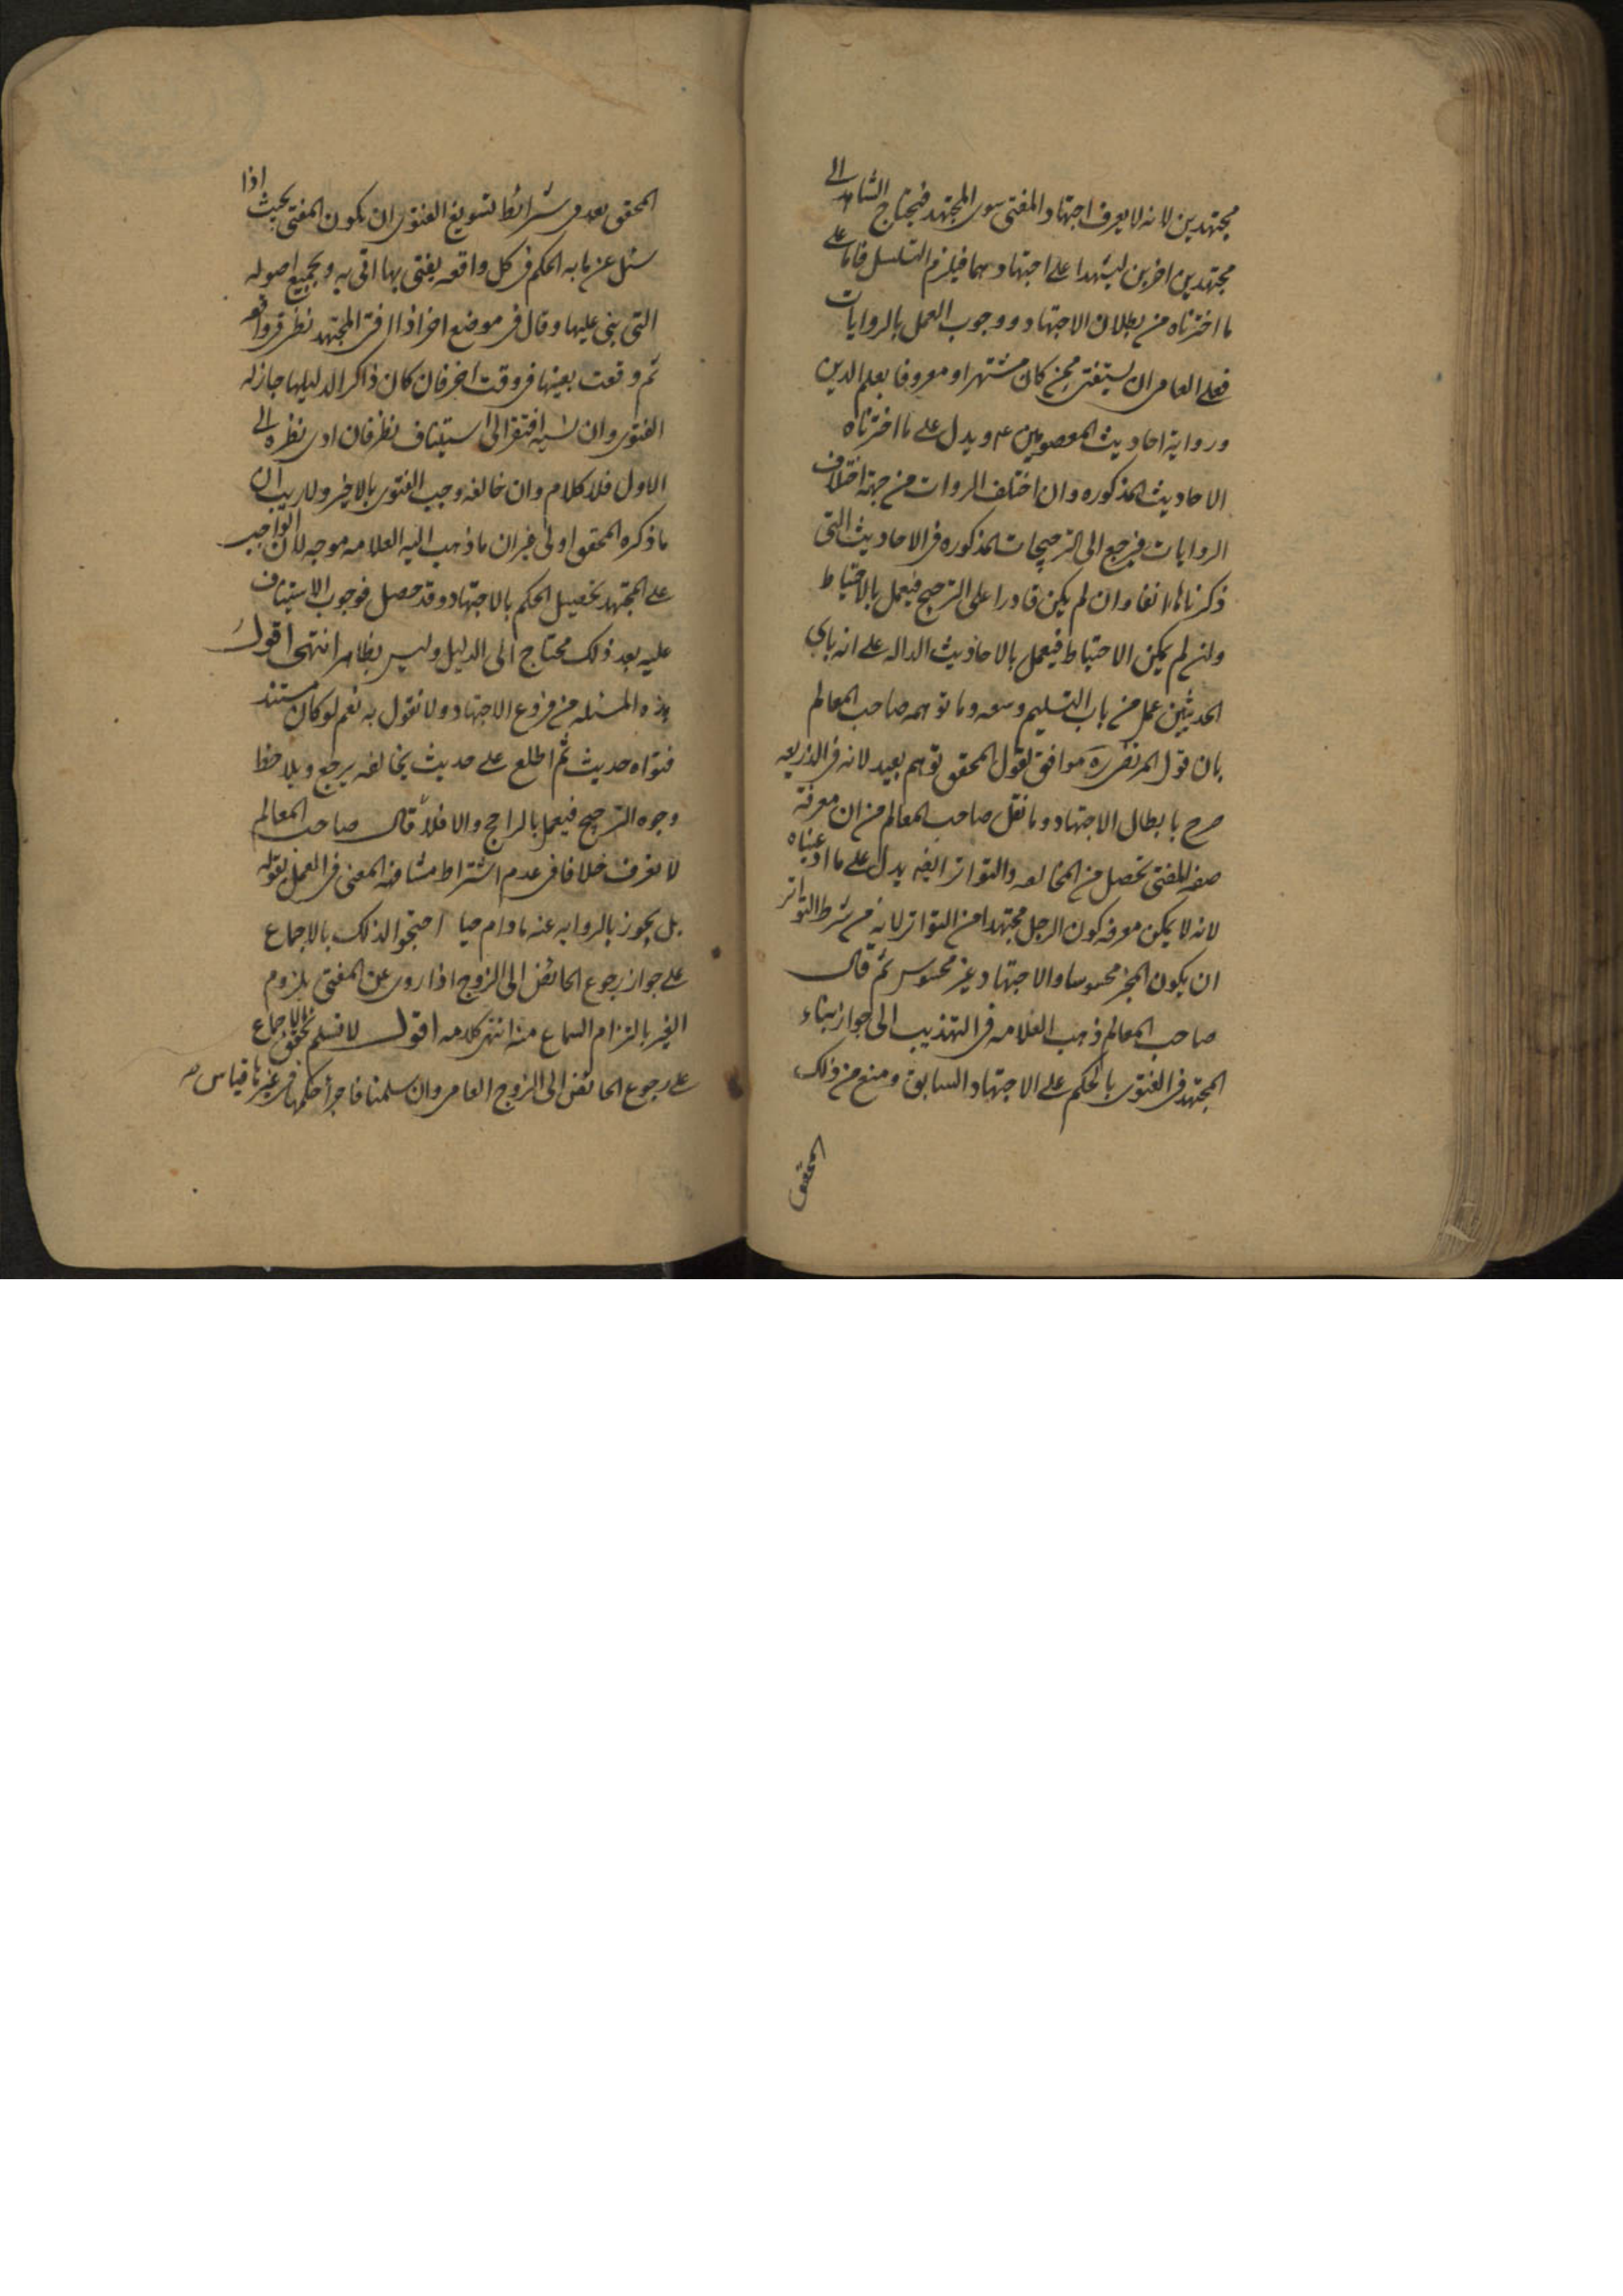 مجتهدين لانه لا يعرف اجتهاد المفتى سوى المجتهد فيحتاج الشاهد الى
مجتهدين اخرين ليشهدا على اجتهادهما فيلزم التسلسل فاما على
ما اخترناه من بطلان الاجتهاد ووجوب العمل بالروايات
فعلى العامى ان يستفتى ممن كان مشتهرا ومعروفا بعلم الدين
ورواية احاديث المعصومين ع ويدل على ما اخترناه
الاحاديث المذكوره وان اختلف الروات من جهة اختلاف
الروايات فيرجع الى الترجيحات المذكوره فى الاحاديث التى
ذكرناها انفا وان لم يكن قادرا على الترجيح فيعمل بالاحتياط
وان لم يمكن الاحتياط فيعمل بالاحاديث الداله على انه باى
الحديثين عمل من باب التسليم وسعه وما توهمه صاحب المعالم
بان قول المرتضى ره موافق لقول المحقق توهم بعيد لانه فى الذريعه
صرح بابطال الاجتهاد وما نقل صاحب المعالم من ان معرفة
صفه المفتى تحصل من المخالطه والتواتر ايضا يدل على ما ادعيناه
لانه لا يمكن معرفه كون الرجل مجتهدا من التواتر لانه من شرط التواتر
ان يكون المخبر محسوسا والاجتهاد غير محسوس ثم قال
صاحب المعالم ذهب العلامه فى التهذيب الى جواز بناء
المجتهد فى الفتوى بالحكم على الاجتهاد السابق ومنع من ذلك
المحقق
المحقق بعد فى شرائط تسويغ الفتوى ان يكون المفتى بحيث اذا
سئل عن مابه الحكم فى كل واقعه يفتى بها اتى به وبجميع اصوله
التى بنى عليها وقال فى موضع اخر اذا افتى المجتهد نظر فى واقعه
ثم وقعت بعينها فى وقت اخر فان كان ذاكر الدليلها جاز له
الفتوى وان نسيه افتقر الى استيناف نظر فان ادى نظره الى
الاول فلا كلام وان خالفه وجب الفتوى بالاخير ولاريب ان
ما ذكره المحقق اولى غير ان ما ذهب اليه العلامه موجه لان الواجب
على المجتهد تحصيل الحكم بالاجتهاد وقد حصل فوجوب الاستيناف
عليه بعد ذلك محتاج الى الدليل وليس بظاهر انتهى اقول
هذه المسئله من فروع الاجتهاد ولا نقول به نعم لو كان مستند
فتواه حديث ثم اطلع على حديث يخالفه يرجع ويلاحظ
وجوه الترجيح فيعمل بالراجح والا فلا قال صاحب المعالم
لا نعرف خلافا فى عدم اشتراط مشافهه المفتى فى العمل بقوله
بل يجوز بالروايه عنه مادام حيا احتجوا لذلك بالاجماع
على جواز رجوع الحائض الى الزوج اذا روى عن المفتى بلزوم
العسر بالتزام السماع منه انتهى كلامه اقول لا نسلم تحقق الاجماع
على رجوع الحائض الى الزوج العامى وان سلمنا فاجراء حكمها فى غيرها قياس